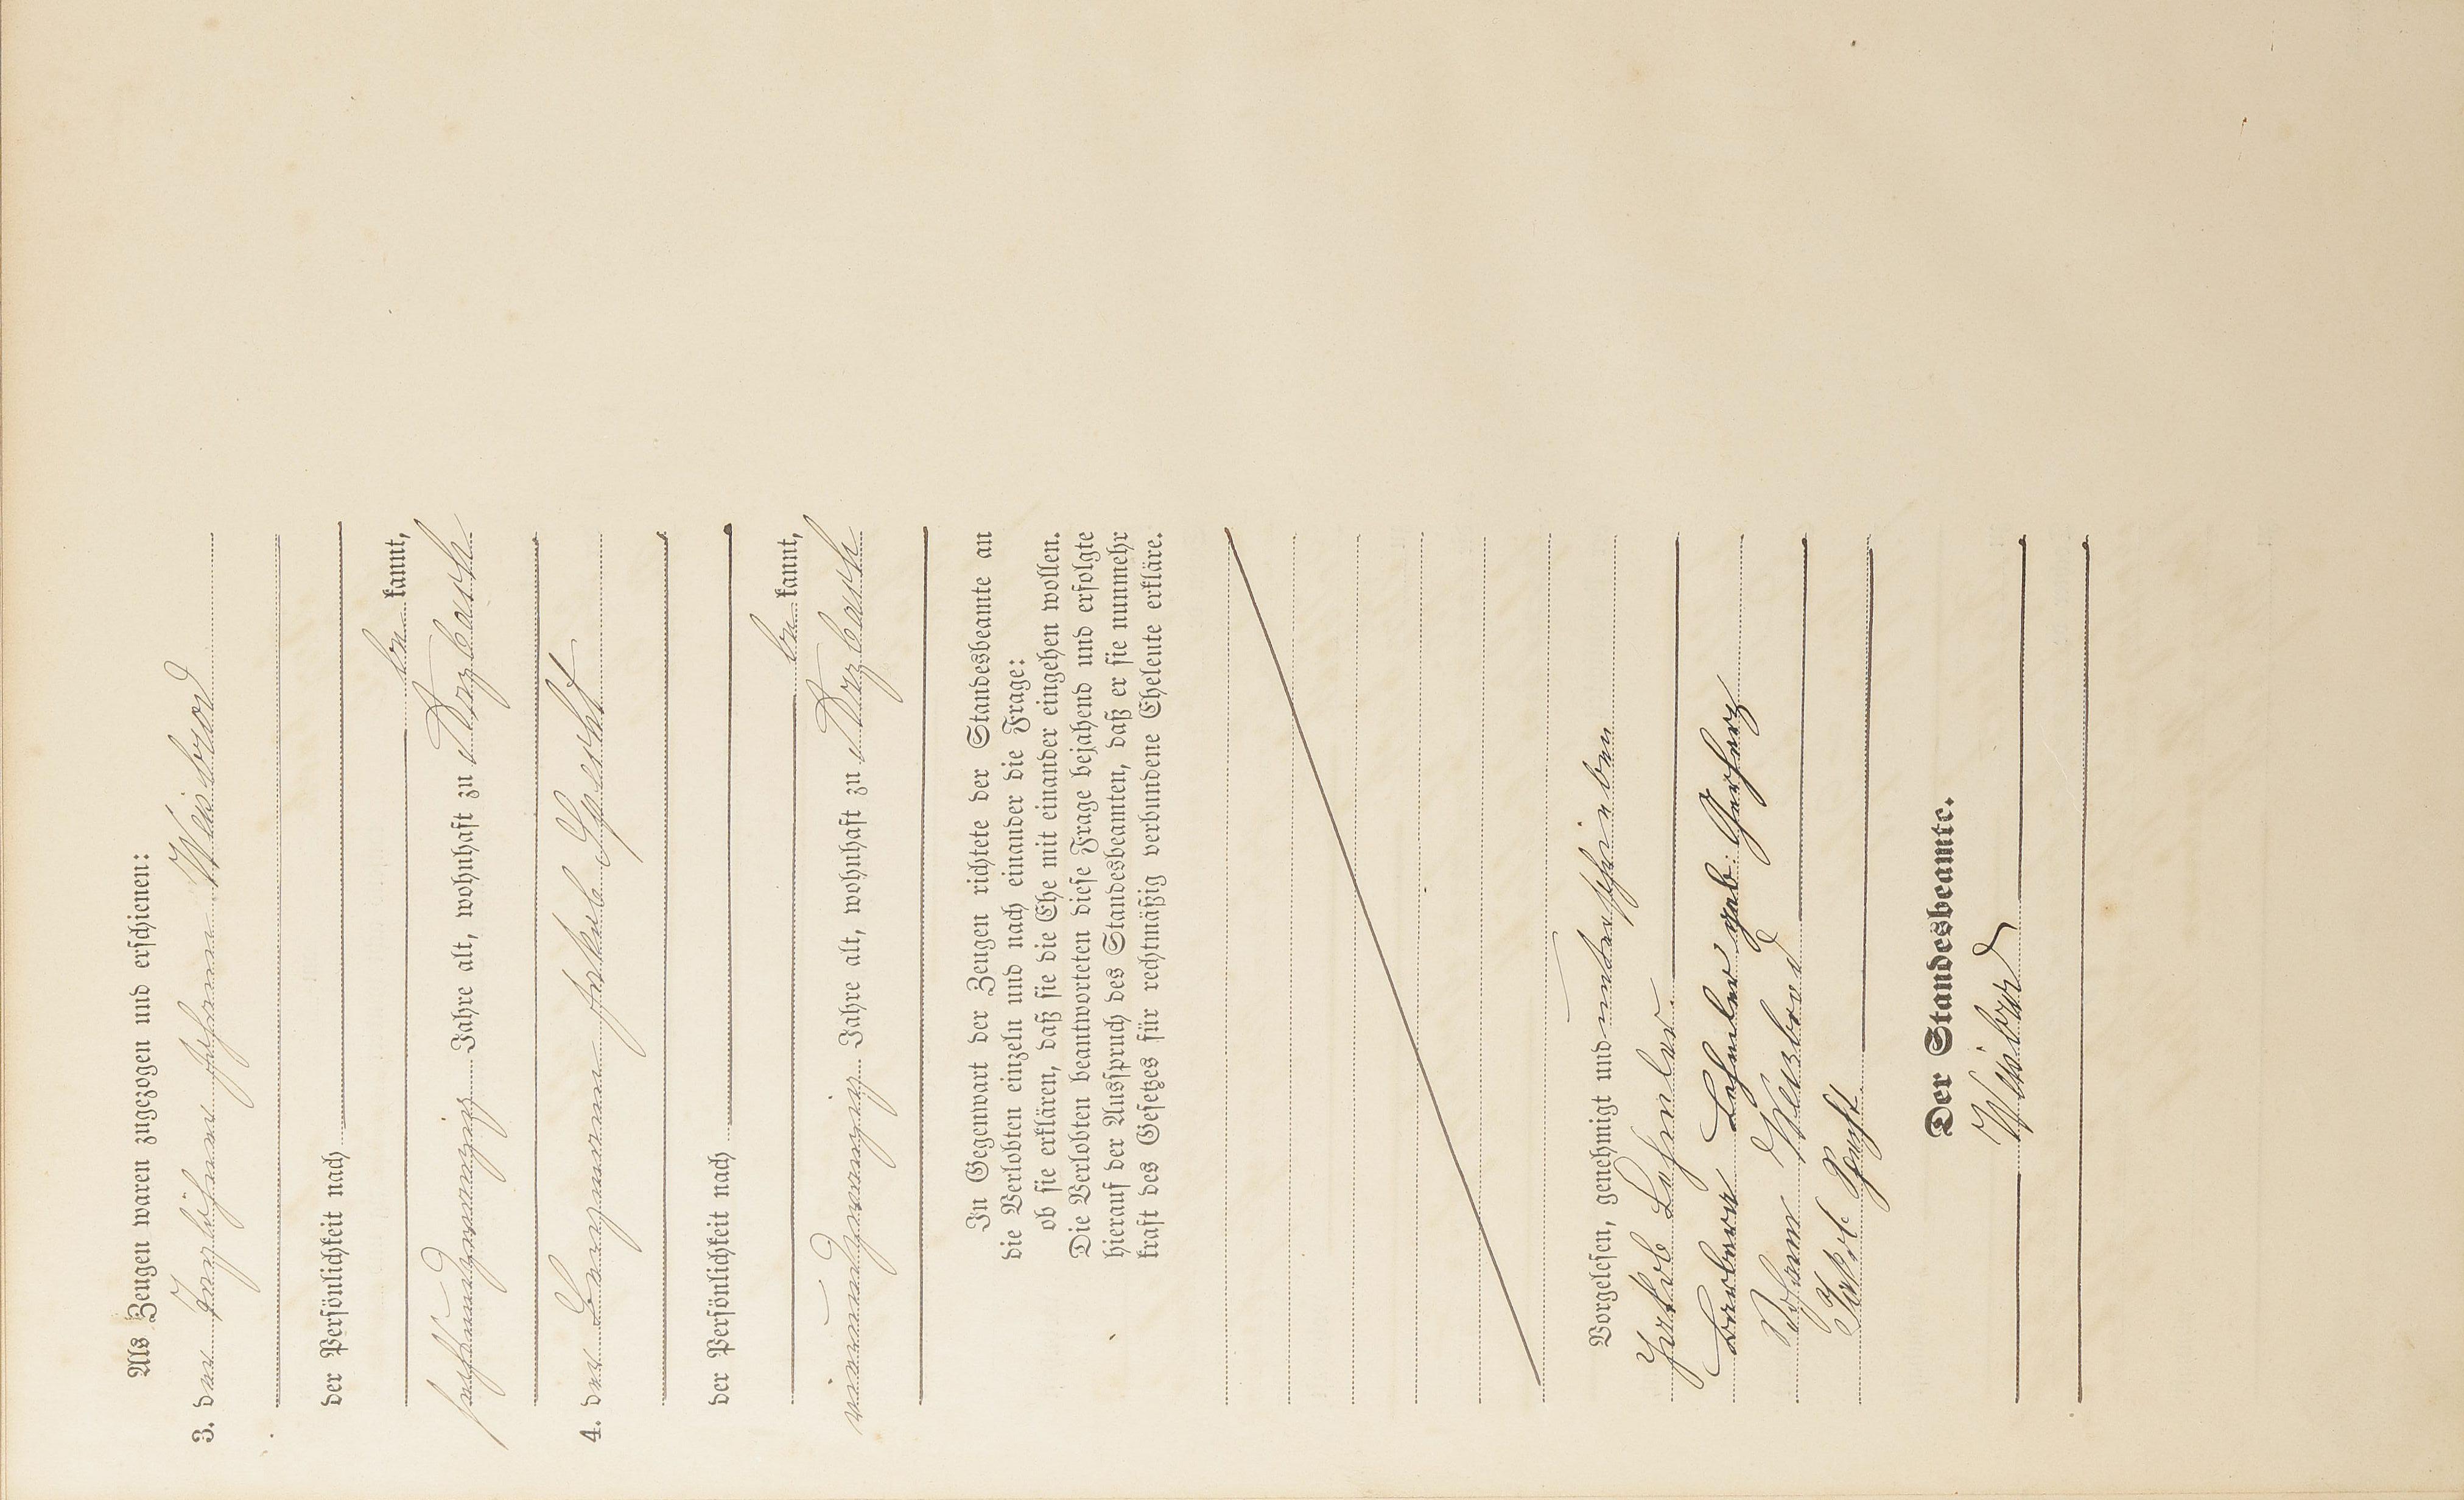 Als Zeugen waren zugezogen und erschienen:
3. der Johann Weisbrod
der Persönlichkeit nach
be kannt,
sechsundzwanzig Jahre alt, wohnhaft zu
4. der Bergmann Jakob Specht
der Persönlichkeit nach
be kannt,
vierundzwanzig Jahre alt, wohnhaft zu
In Gegenwart der Zeugen richtete der Standesbeamte an
die Verlobten einzeln und nach einander die Frage:
ob sie erklären, daß sie die Ehe mit einander eingehen wollen.
Die Verlobten beantworteten diese Frage bejahend und erfolgte
hierauf der Ausspruch des Standesbeamten, daß er sie nunmehr
kraft des Gesetzes für rechtmäßig verbundene Eheleute erkläre.
Vorgelesen, genehmigt und unterschrieben
Jakob Lehnler
Barbara Lehnler geb.
Johann Weisbrod
Jakob Specht
Der Standesbeamte.